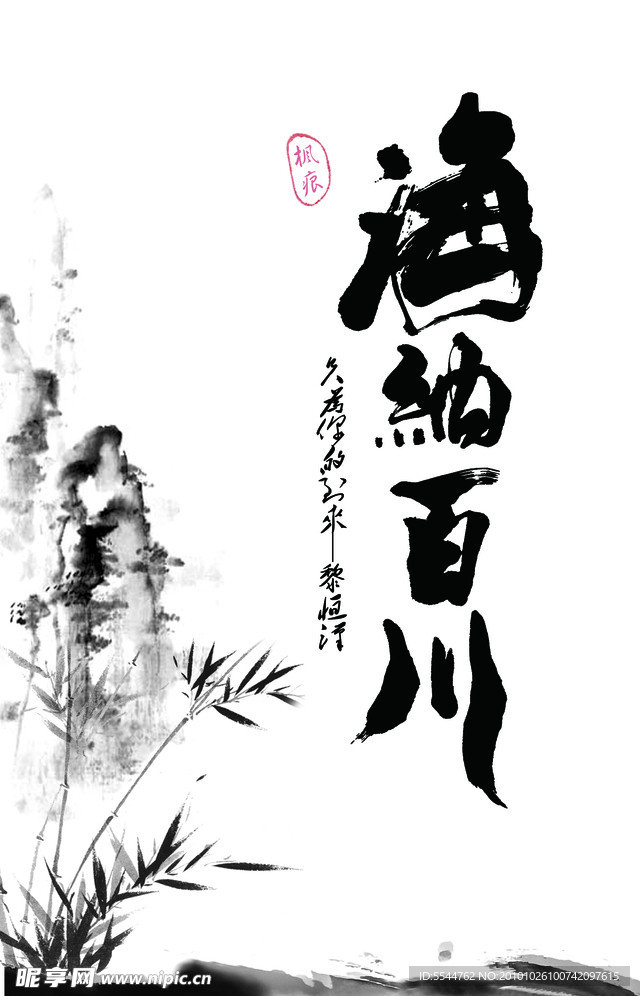 海纳百川
枫痕
久为你的到来
黎恒
昵享网 www.nipic.cn
ID:5544762 NO:20101026100742097615